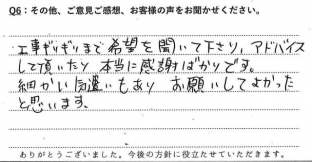 Q6：その他、ご意見ご感想、お客様の声をお聞かせください。
工事ギリギリまで希望を聞いて下さり、アドバイス
して頂いたり 本当に感謝ばかりです。
細かい気遣いもあり お願いしてよかった
と思います。
ありがとうございました。今後の方針に役立たせていただきます。